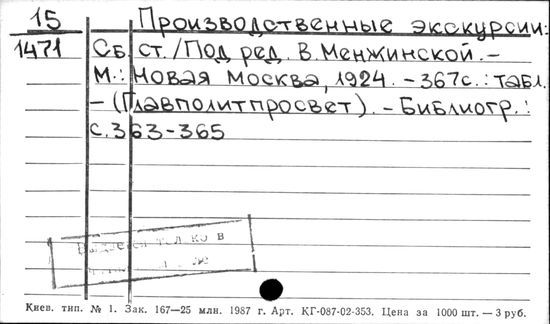 15 Производственные экскурсии:
1471 Сб. ст./Под ред. В. Менжинской. –
М.: Новая Москва, 1924. – 367с.: табл.
– (Главполитпросвет). – Библиогр.:
с. 363-365
только в
Киев. тип. № 1. Зак. 167—25 млн. 1987 г. Арт. КГ-087-02-353. Цена за 1000 шт. — 3 руб.